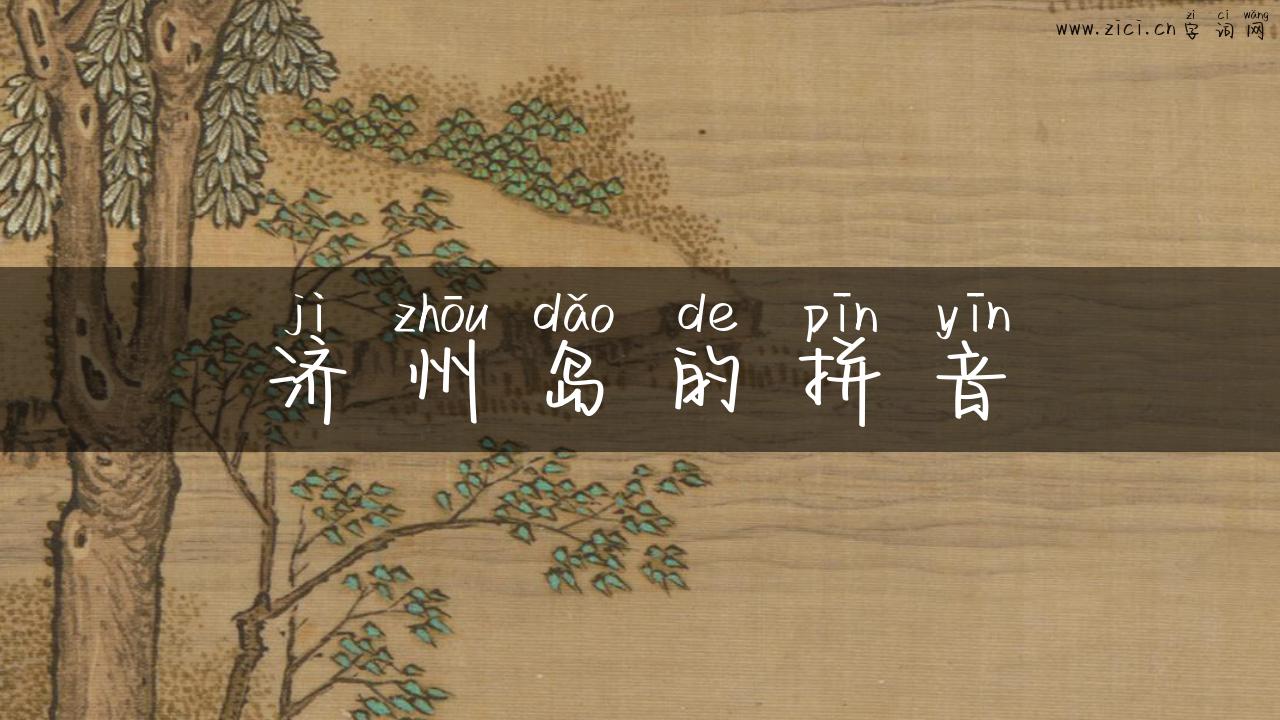 zì cí wǎng
www.zici.cn 字词网
jì zhōu dǎo de pīn yīn
济州岛的拼音